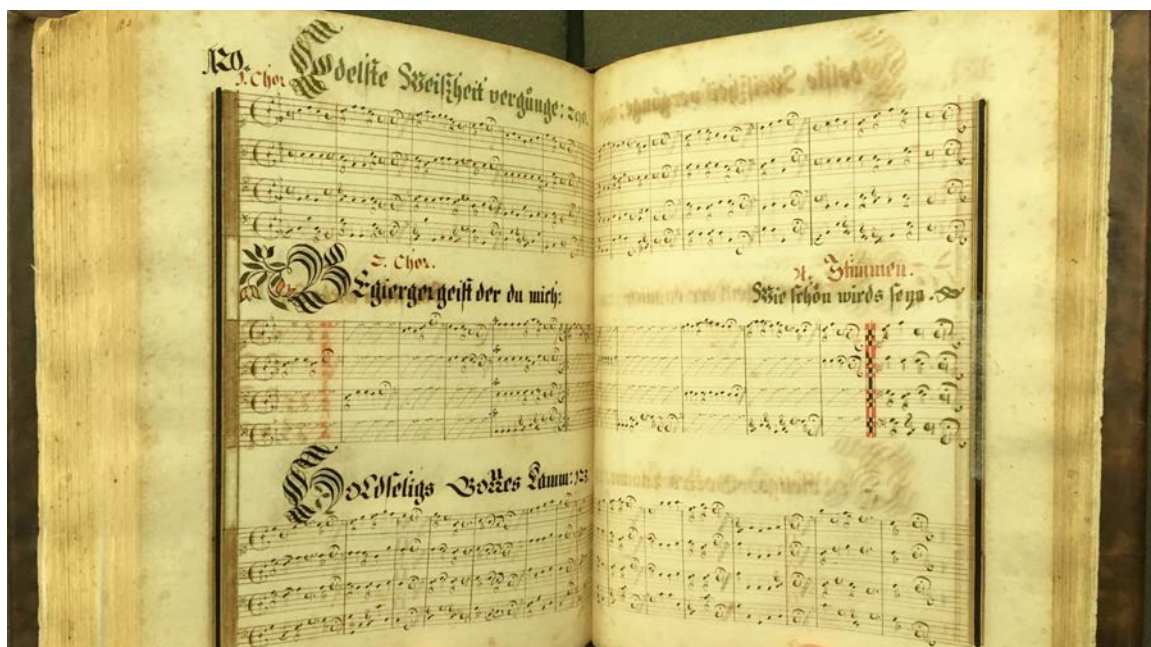 120.
1. Chor
Edelste Weißheit vergünge: 296.
2. Chor.
Begierger geist der du mich:
4. Stimmen.
Wie schön wirds seyn.
Holdseligs Gottes Lamm: 123